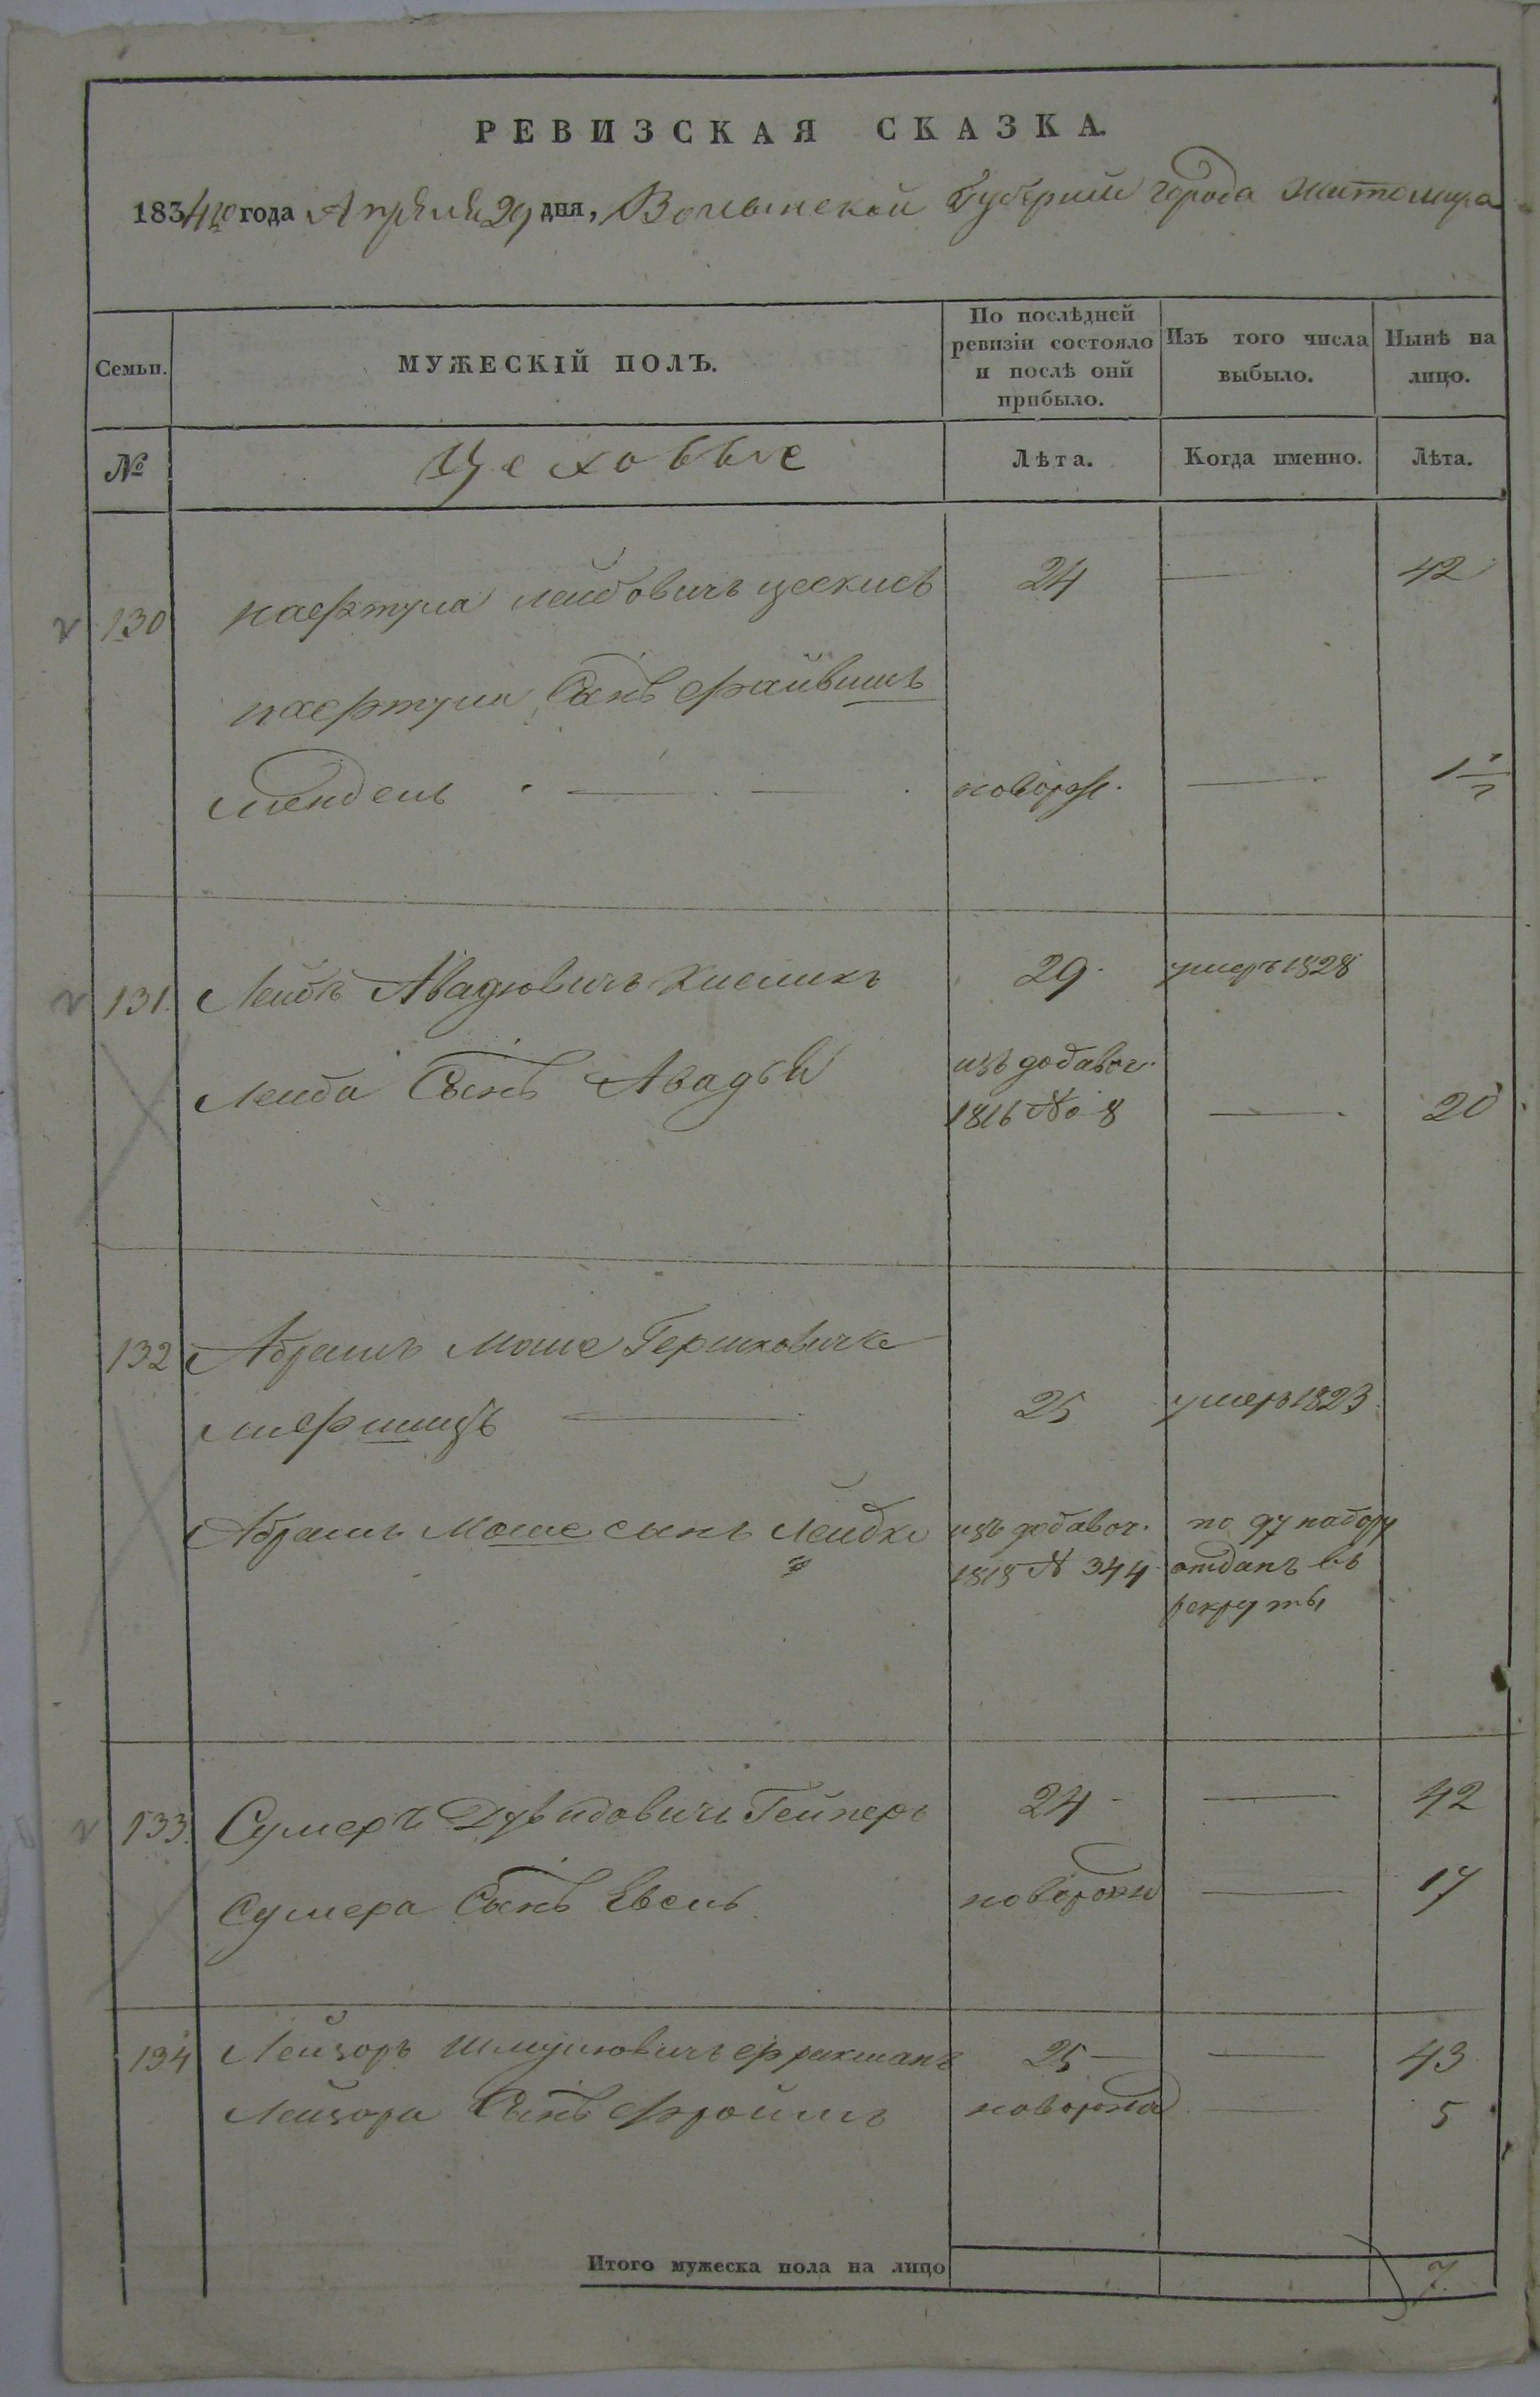 РЕВИЗСКАЯ СКАЗКА.
1834го года Апреля 29 дня, Волынской Губернии города Житомира
Семьи.
МУЖЕСКІЙ ПОЛЪ.
По послѣдней ревизіи состояло и послѣ оной прибыло.
Изъ того числа выбыло.
Нынѣ на лицо.
№
Цеховые
Лѣта.
Когда именно.
Лѣта.
130 Нафтула Лейбовичъ 24 — 42
Нафтулы Сынъ Файвишъ
Мендель — — новорж. — 1 1/2
131. Лейбъ Авадювичъ 29. умеръ 1828
Лейба Сынъ Авадъй изъ добавоч.
1816 № 8 — 20
132 Абрамъ Моше Гершковичъ
Лифшицъ — 25 умеръ 1823
Абрамъ Моше сынъ Лейбка изъ добавоч. по 97 набору
1818 № 344 отданъ въ
рекруты
133. Сумеръ Дувидовичъ Гейнеръ 24 — 42
Сумера Сынъ Евсель новорож — 17
134 Лейзоръ Шмулювичъ Фрихманъ 25 — 43
Лейзора Сынъ Фроимъ новорожд — 5
Итого мужеска пола на лицо 7